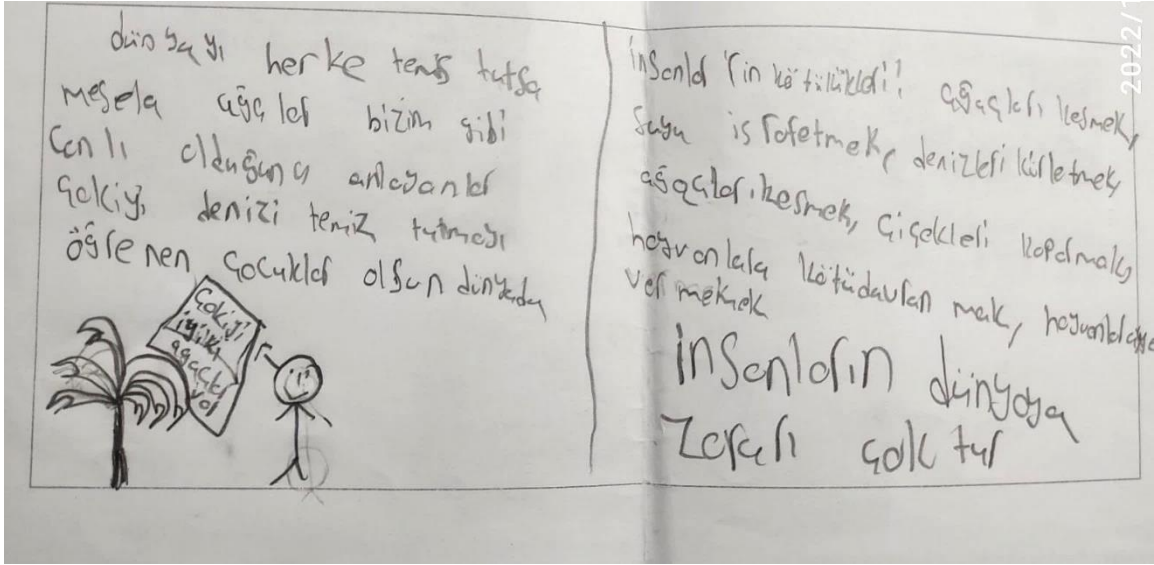 dünyayı herke temis tutsa
mesela ağaçlar bizim gibi
canlı olduğunu anlayanlar
çokiyi, denizi temiz tutmayı
öğrenen çocuklar olsun dünyada
çokiyi
iyiki
ağaçlar
var
insanlar'ın kötülükleri! ağaçları kesmek,
suyu israfetmek, denizleri kirletmek,
ağaçları kesmek, çiçekleri koparmak,
hayvanlara kötüdavranmak, hayvanlara
vermemek
insanların dünyaya
zararı çoktur
2022/1